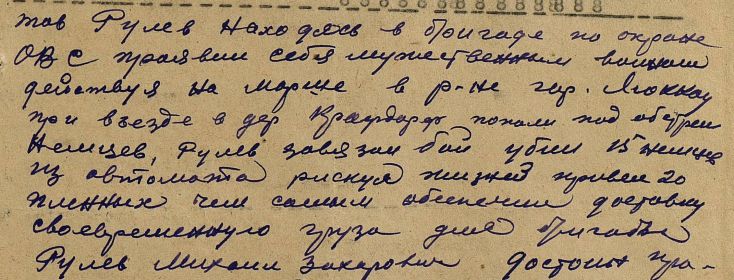 тов Рулев находясь в бригаде по охране
ОВС проявил себя мужественным воином
действуя на марше в р-не гор.
при въезде в дер попали под обстрел
Немцев, Рулев завязал бой убил 15 немцев
из автомата рискуя жизней привел 20
пленных чем самым обеспечил доставку
своевременную груза для бригады
Рулев Михаил Захарович достоин пра-